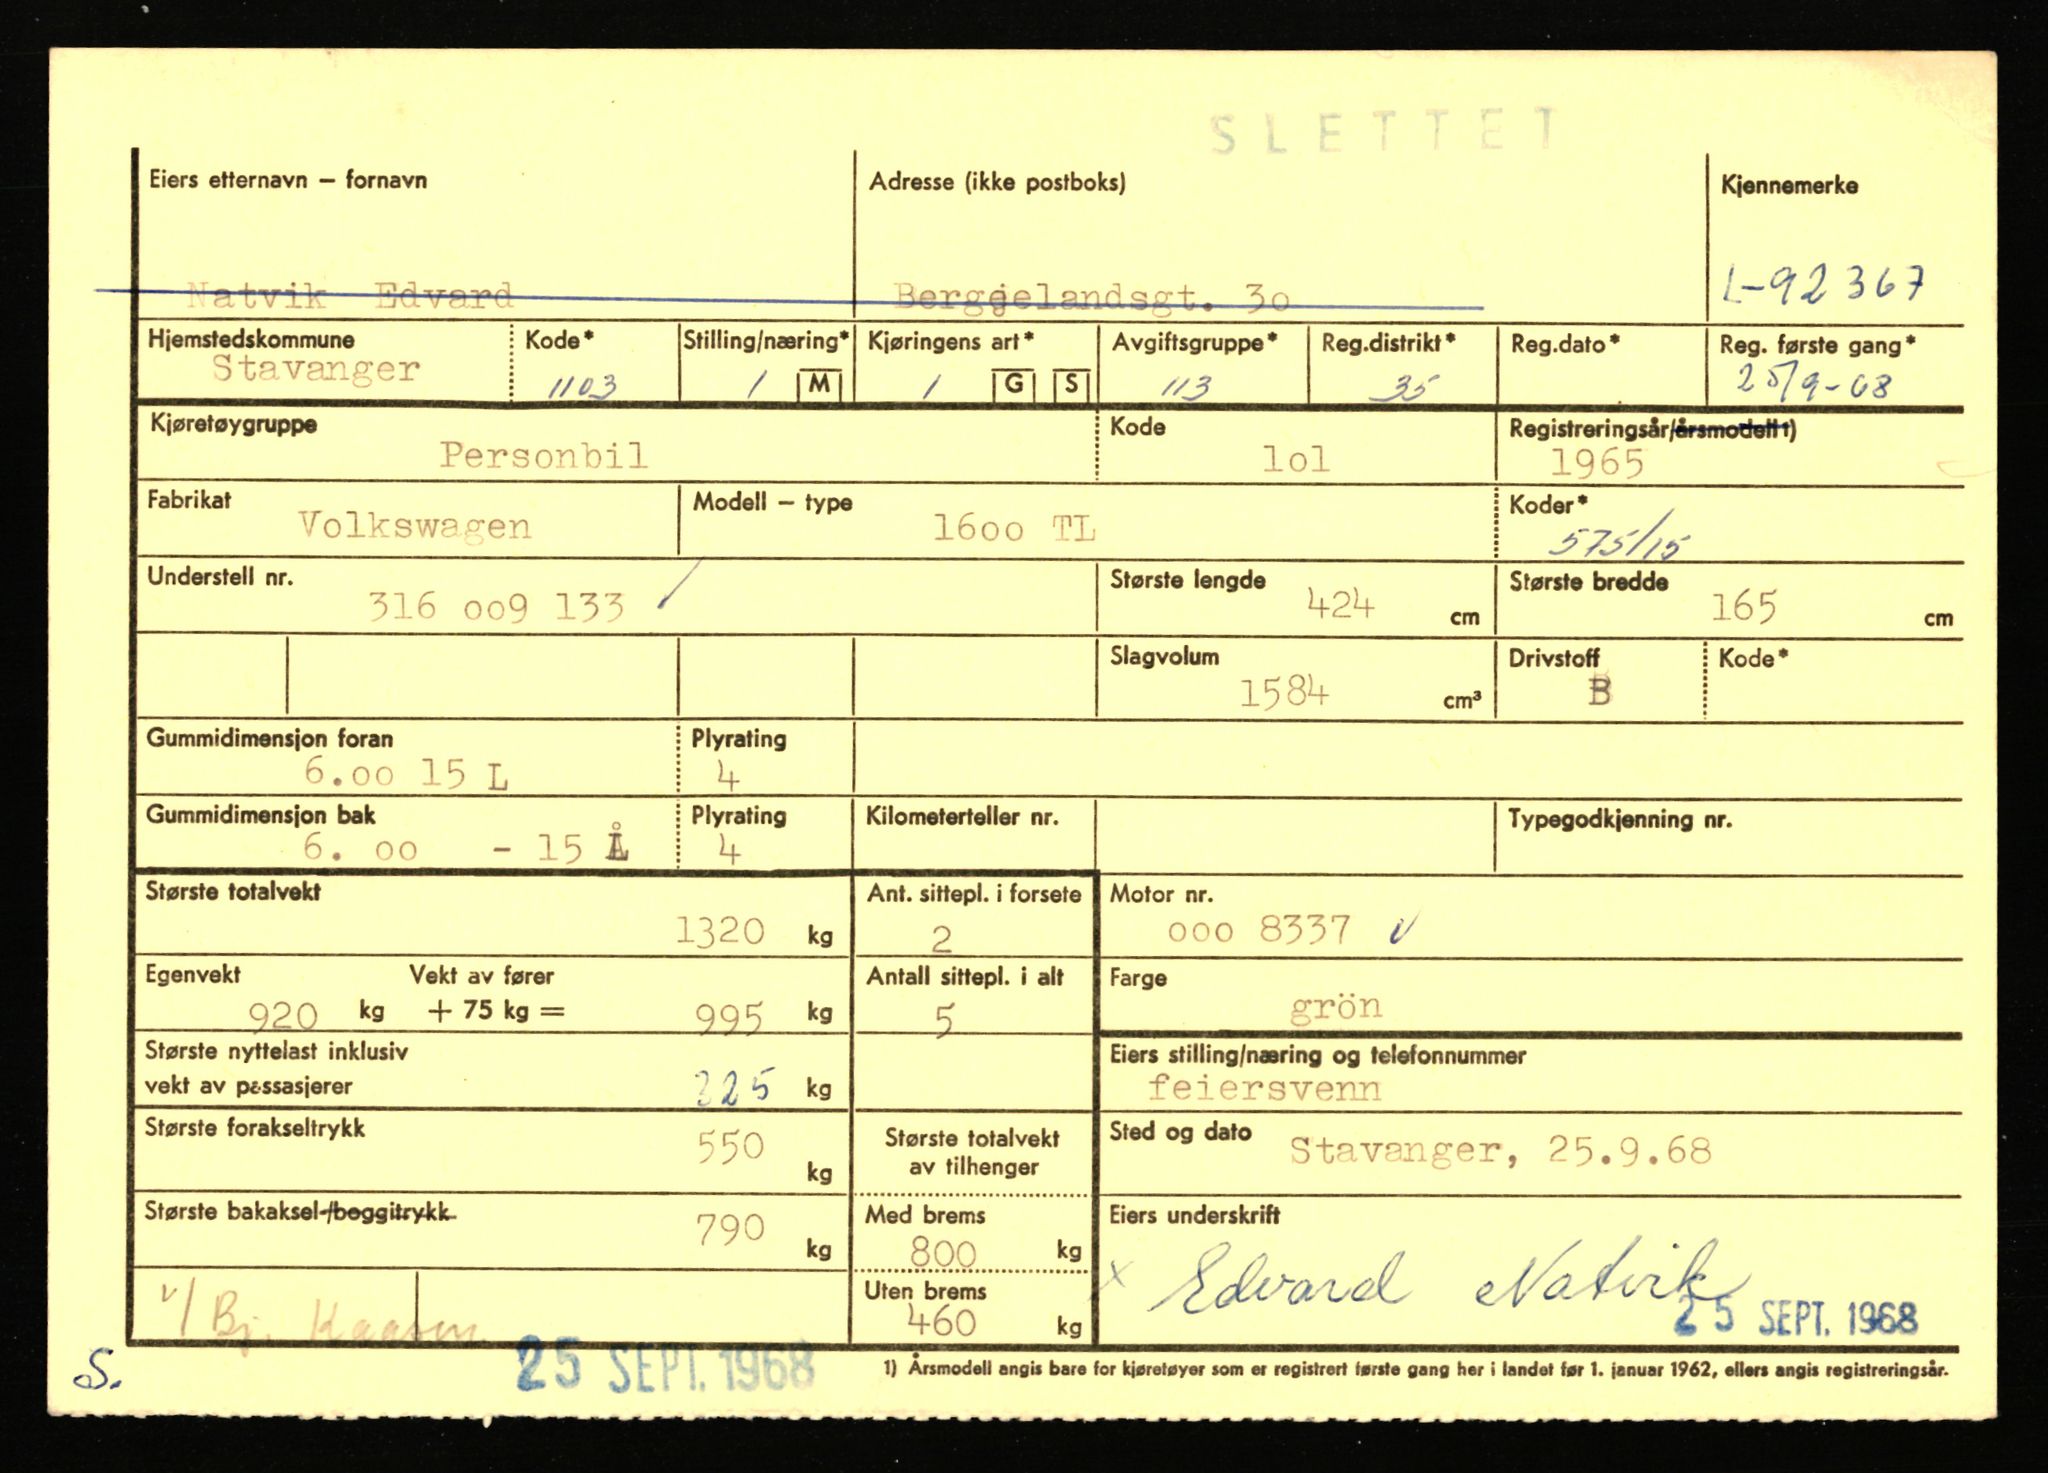 SLETTET
Eiers etternavn – fornavn Adresse (ikke postboks) Kjennemerke
Natvik Edvard Bergjelandsgt. 3o L-92367
Hjemstedskommune Kode* Stilling/næring* Kjøringens art* Avgiftsgruppe* Reg.distrikt* Reg.dato* Reg. første gang*
Stavanger 1103 1 M 1 G S 113 35 25/9-68
Kjøretøygruppe Kode Registreringsår/årsmodell 1)
Personbil lol 1965
Fabrikat Modell – type Koder*
Volkswagen 16oo TL 575/15
Understell nr. Største lengde Største bredde
316 oo9 133 424 cm 165 cm
Slagvolum Drivstoff Kode*
1584 cm³ B
Gummidimensjon foran Plyrating
6.oo 15 L 4
Gummidimensjon bak Plyrating Kilometerteller nr. Typegodkjenning nr.
6. oo - 15 L 4
Største totalvekt Ant. sittepl. i forsete Motor nr.
1320 kg 2 ooo 8337
Egenvekt Vekt av fører Antall sittepl. i alt Farge
920 kg + 75 kg = 995 kg 5 grön
Største nyttelast inklusiv Eiers stilling/næring og telefonnummer
vekt av passasjerer 325 kg feiersvenn
Største forakseltrykk 550 kg Største totalvekt av tilhenger Sted og dato Stavanger, 25.9.68
Største bakaksel-/boggitrykk 790 kg Med brems Eiers underskrift
800 kg x Edvard Natvik
Uten brems
v/ Bj. Kaasen 460 kg 25 SEPT. 1968
S. 25 SEPT. 1968 1) Årsmodell angis bare for kjøretøyer som er registrert første gang her i landet før 1. januar 1962, ellers angis registreringsår.